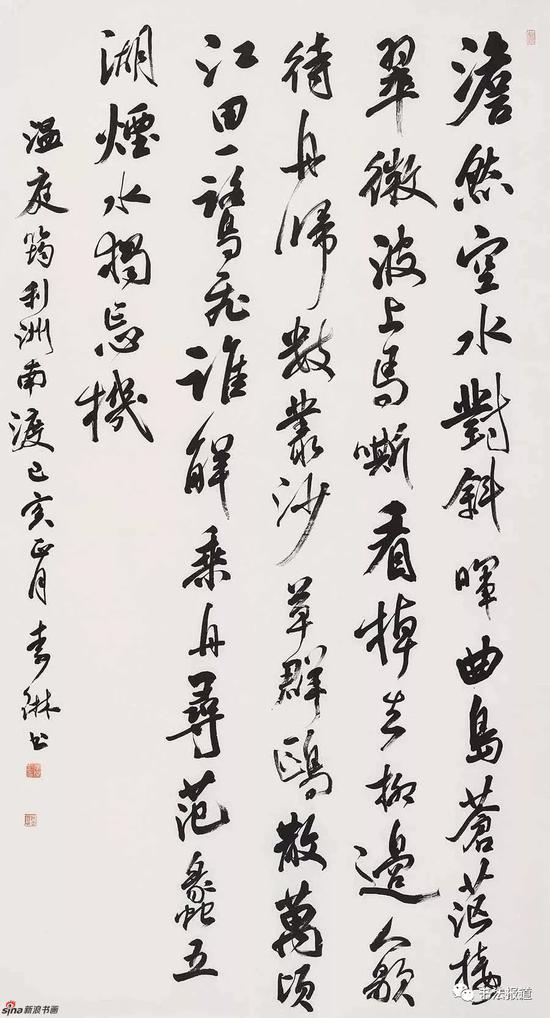 澹然空水對斜暉曲島蒼茫接
翠微波上馬嘶看棹去柳邊人歇
待舟歸數叢沙草群鷗散萬頃
江田一鷺飛誰解乘舟尋范蠡五
湖煙水獨忘機
温庭筠利洲南渡己亥正月琳书
sina新浪书画
书法报道